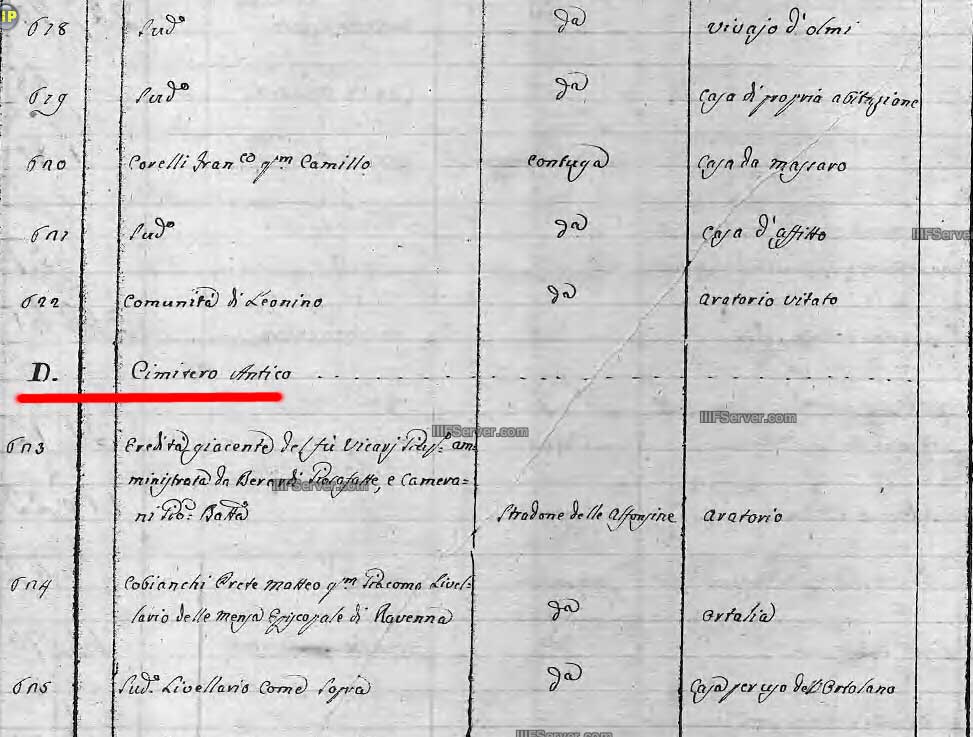 618 Sud.º dª vivajo d'olmi
619 Sud.º dª Casa di propria abitazione
620 Corelli Fran.co q.m Camillo contuga Casa da massaro
621 Sud.º dª Casa d'affitto
622 Comunità di Leonino dª aratorio vitato
D. Cimitero Antico
623 Eredità giacente del fù Vicarj am=
ministrata da Berardi Giosafatte, e Camera=
ni Gio: Battª Stradone delle Alfonsine aratorio
624 Cobianchi Prete Matteo q.m Giacomo Livel=
lario della mensa Episcopale di Ravenna dª Ortalia
625 Sud.º Livellario come sopra dª Casa per uso dell'Ortolano
IIIFServer.com
IIIFServer.com
IIIFServer.com
IIIFServer.com
IIIFServer.com